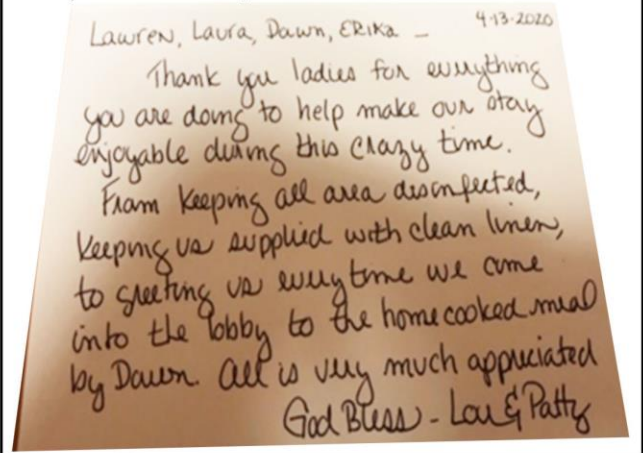 4-13-2020
Lauren, Laura, Dawn, ERIKa -
Thank you ladies for everything
you are doing to help make our stay
enjoyable during this crazy time.
From keeping all area disinfected,
keeping us supplied with clean linen,
to greeting us everytime we come
into the lobby to the homecooked meal
by Dawn. All is very much appreciated
God Bless - Lou & Patty